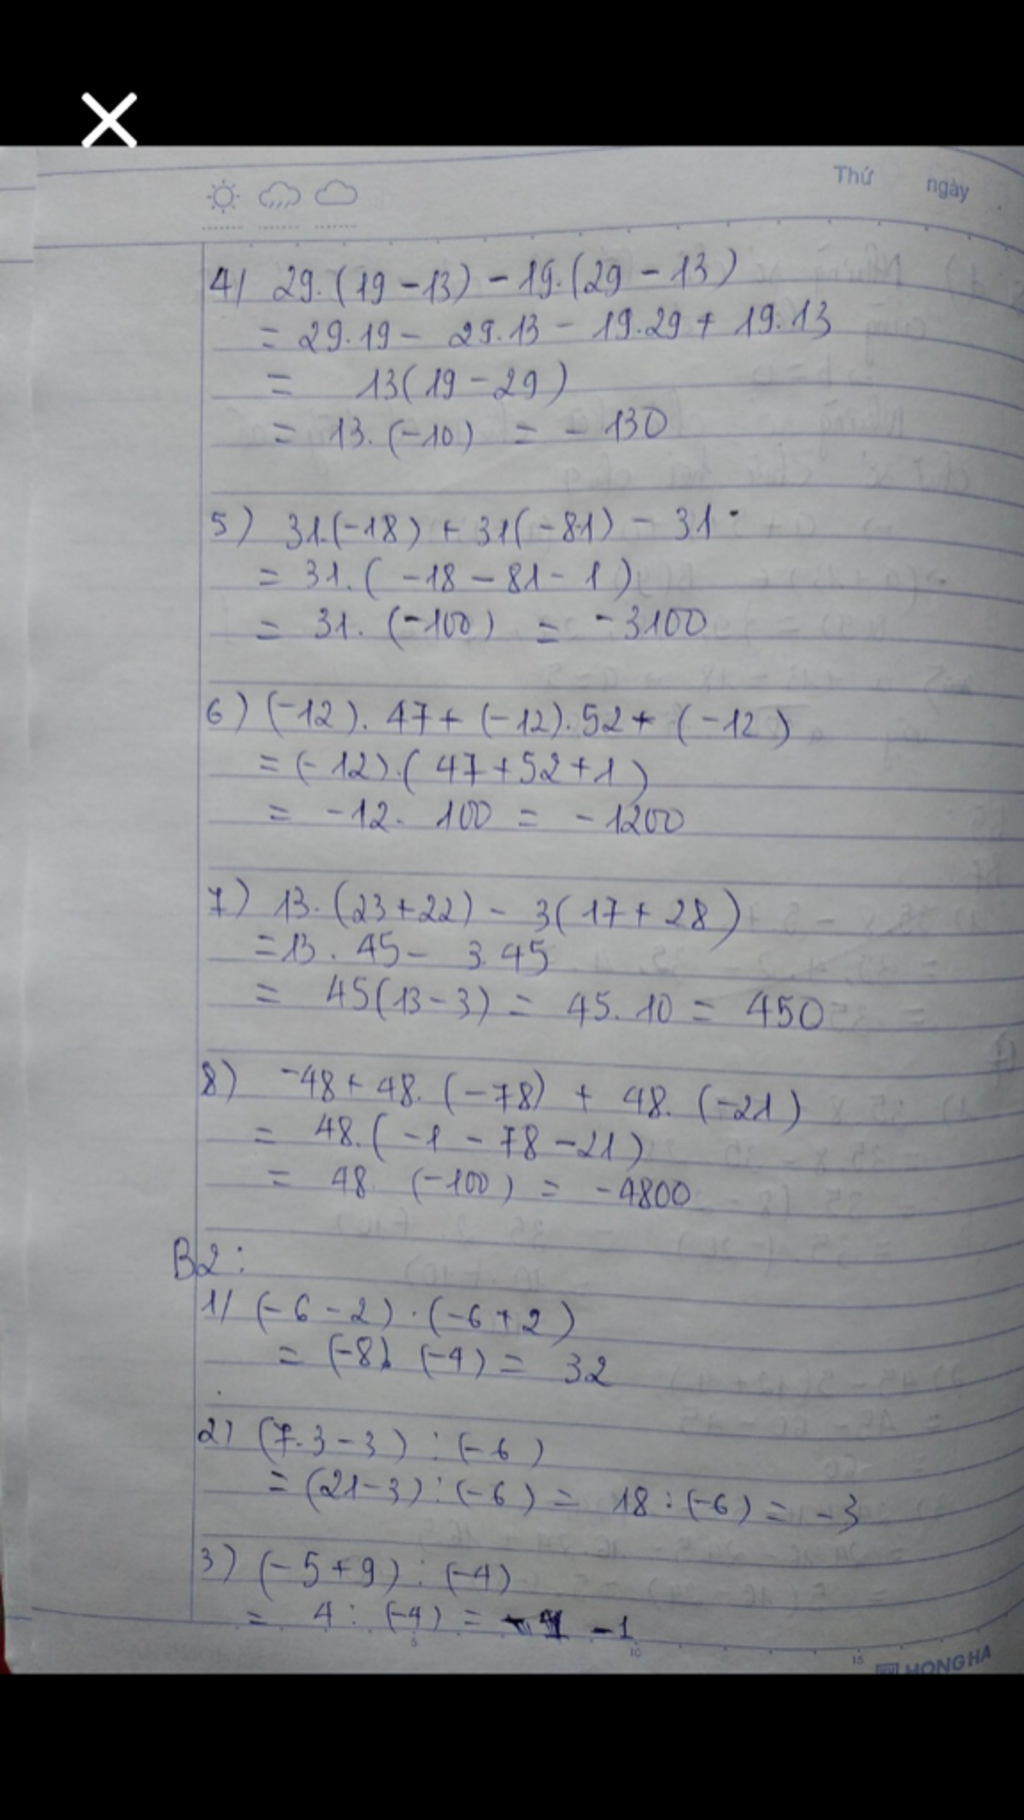 Thứ ngày
4) 29.(19-13) - 19.(29-13)
= 29.19 - 29.13 - 19.29 + 19.13
= 13(19-29)
= 13.(-10) = -130
5) 31.(-18) + 31(-81) - 31
= 31.(-18-81-1)
= 31.(-100) = -3100
6) (-12).47 + (-12).52 + (-12)
= (-12).(47+52+1)
= -12.100 = -1200
7) 13.(23+22) - 3(17+28)
= 13.45 - 3.45
= 45(13-3) = 45.10 = 450
8) -48 + 48.(-78) + 48.(-21)
= 48.(-1-78-21)
= 48 (-100) = -4800
B2:
1) (-6-2).(-6+2)
= (-8).(-4) = 32
2) (7.3-3):(-6)
= (21-3):(-6) = 18:(-6) = -3
3) (-5+9):(-4)
= 4:(-4) = -1
5 10 15
HONG HA